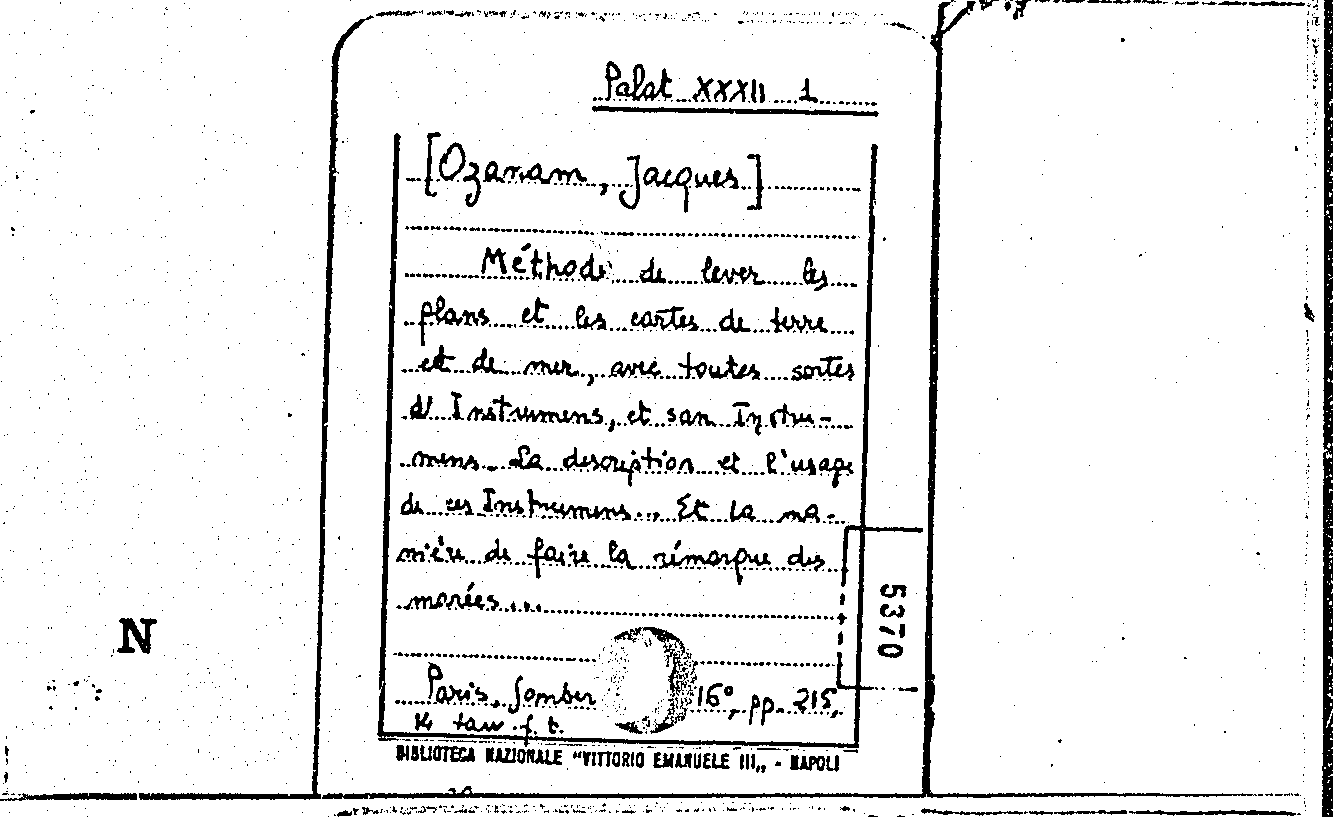 Palat XXXII 1
[Ozanam, Jacques]
Méthode de lever les
plans et les cartes de terre
et de mer, avec toutes sortes
d'Instrumens, et san Instru-
mens. La description et l'usage
de ces Instrumens... Et la ma-
nière de faire la rémarque des
marées...
5370
N
Paris, 16°, pp. 215,
14 tav. f. t.
BIBLIOTECA NAZIONALE "VITTORIO EMANUELE III„ - NAPOLI